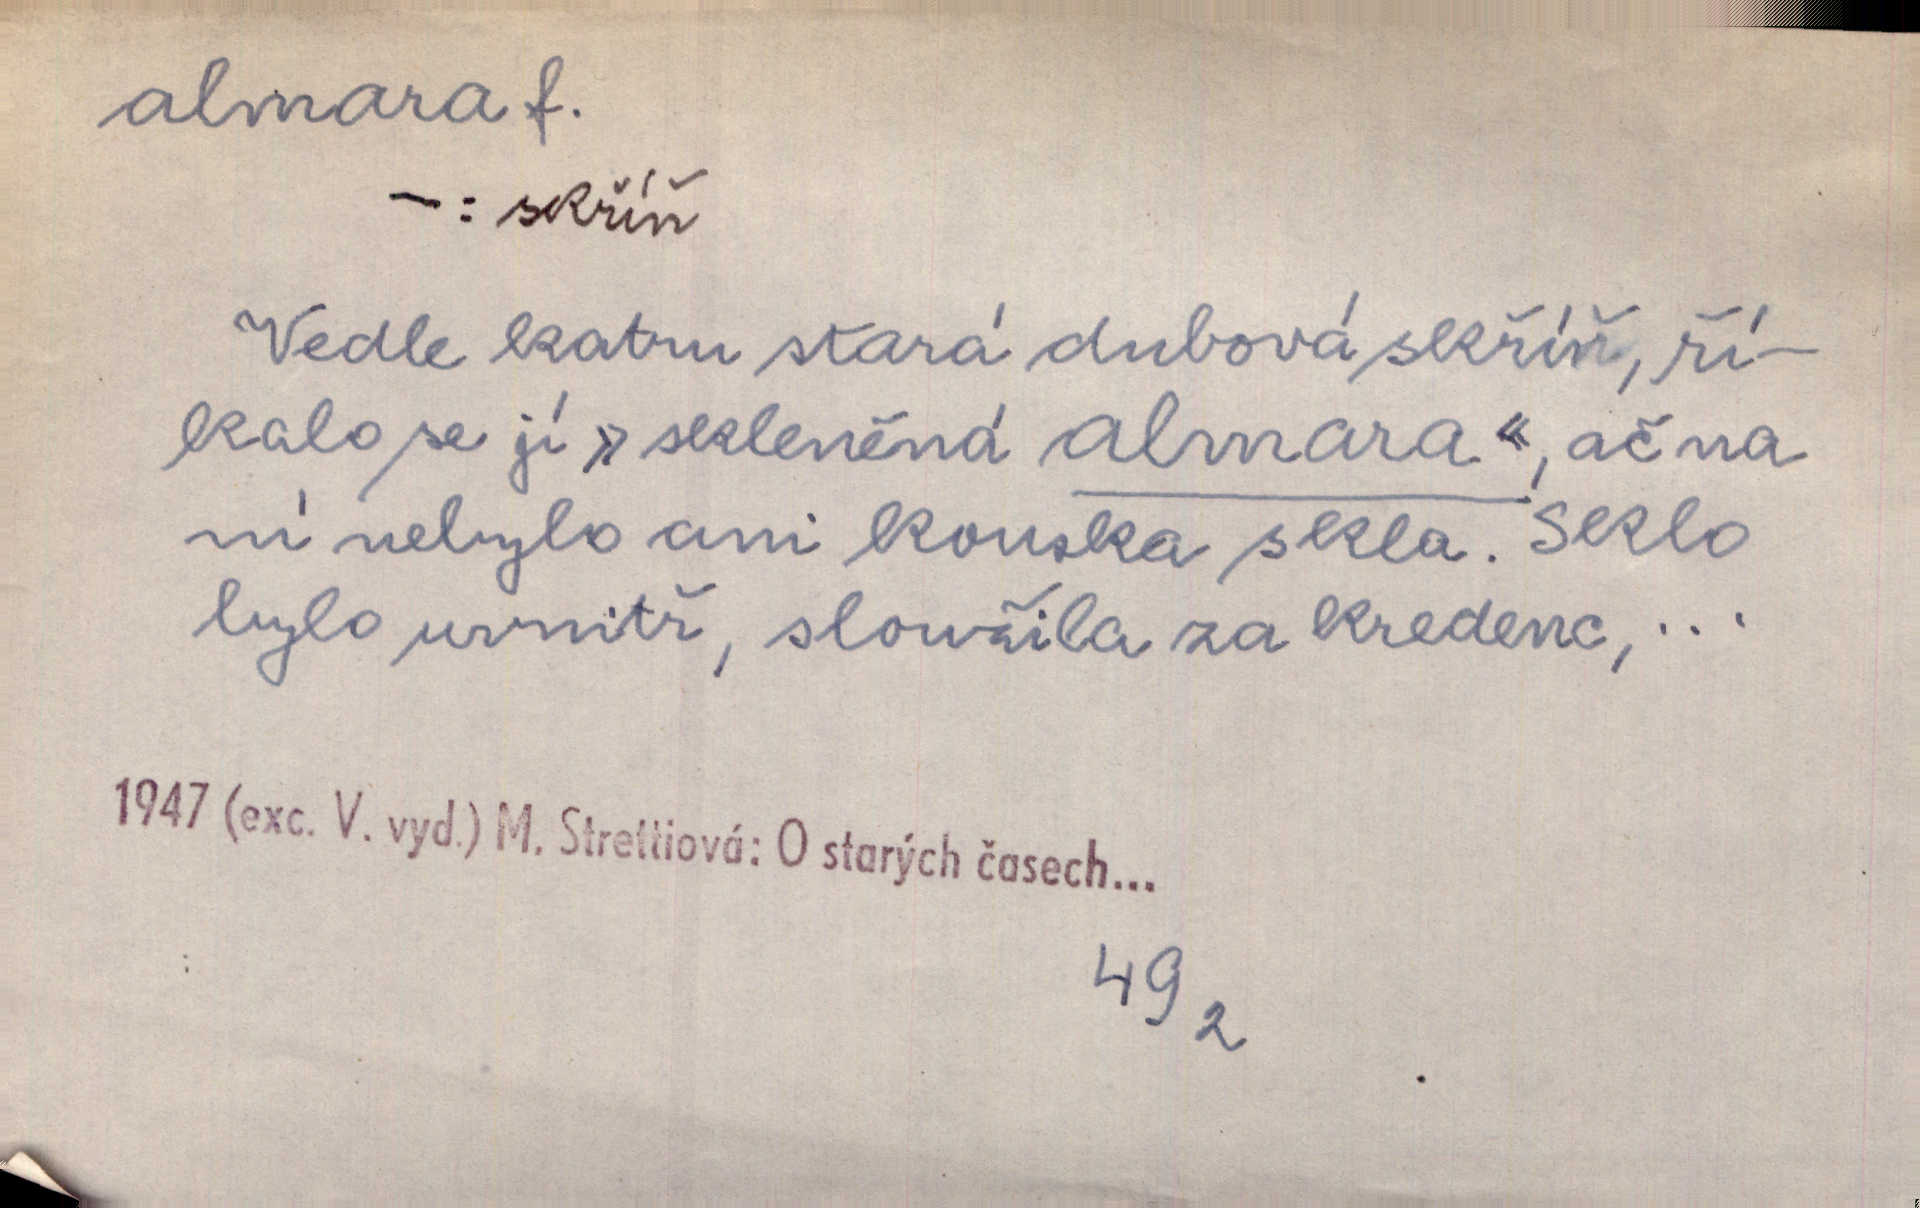 almara f.
— : skříň
Vedle katru stará dubová skříň, ří-
kalo se jí »skleněná almara«, ač na
ní nebylo ani kouska skla. Sklo
bylo uvnitř, sloužila za kredenc, ...
1947 (exc. V. vyd.) M. Strettiová: O starých časech...
49 2